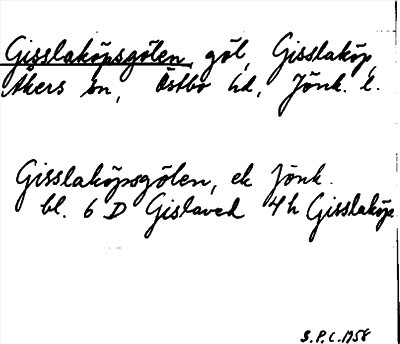 Gisslaköpsgölen, göl, Gisslaköp,
Åkers sn, Östbo hd, Jönk. l.
Gisslaköpsgölen, ek Jönk.
bl. 6 D Gislaved 4h Gisslaköp
S.P.C. 1958